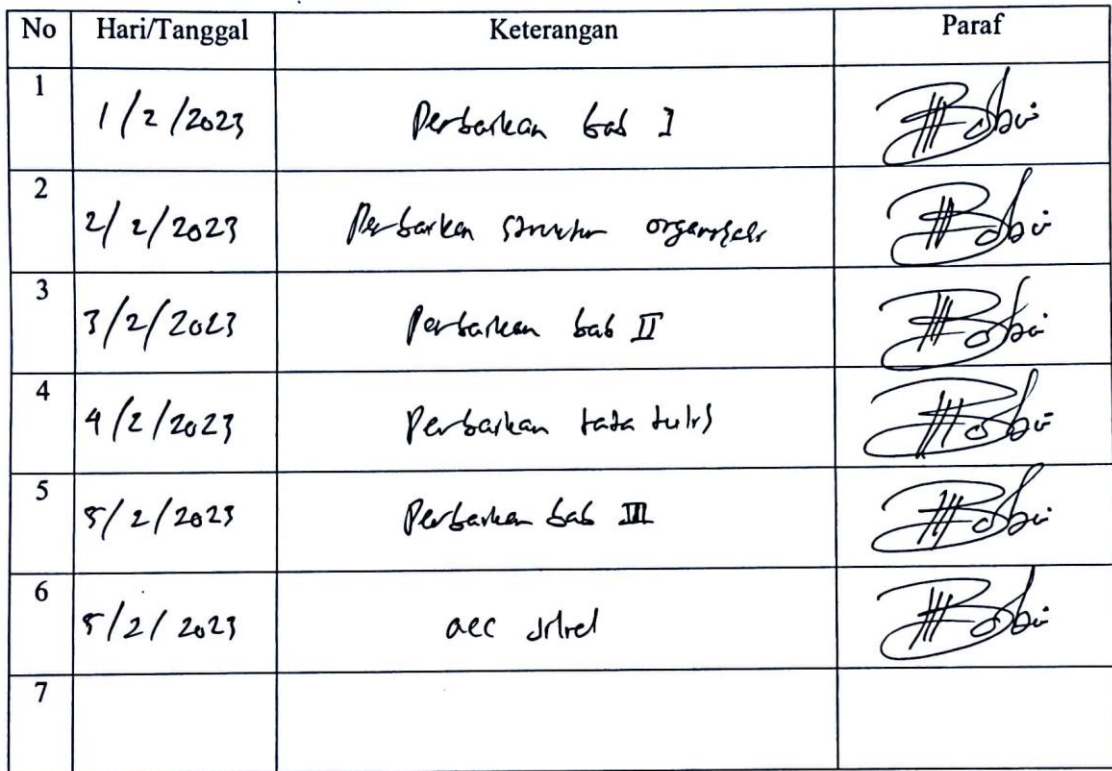 No Hari/Tanggal Keterangan Paraf
1 1/2/2023 Perbaikan bab I
2 2/2/2023 Perbaikan struktur organisasi
3 3/2/2023 Perbaikan bab II
4 4/2/2023 Perbaikan tata tulis
5 5/2/2023 Perbaikan bab III
6 5/2/2023 acc
7